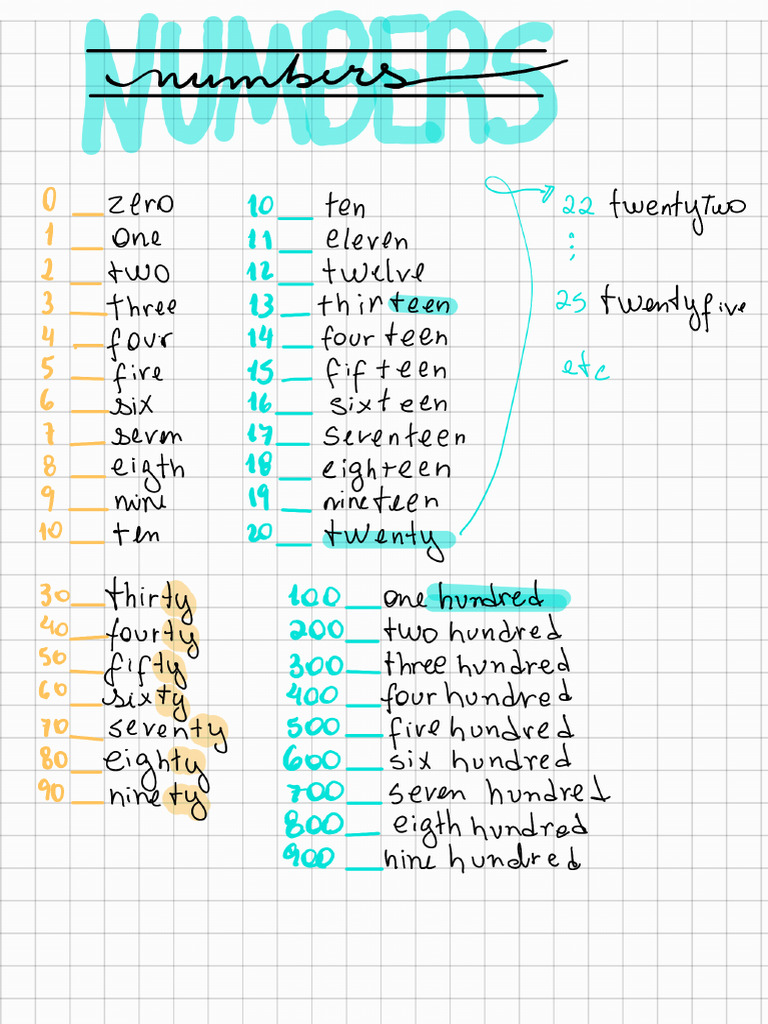 NUMBERS
numbers
0 __ zero
1 __ one
2 __ two
3 __ three
4 __ four
5 __ five
6 __ six
7 __ seven
8 __ eigth
9 __ nine
10 __ ten
10 __ ten
11 __ eleven
12 __ twelve
13 __ thirteen
14 __ fourteen
15 __ fifteen
16 __ sixteen
17 __ seventeen
18 __ eighteen
19 __ nineteen
20 __ twenty
22 twentytwo
:
25 twentyfive
etc
30 __ thirty
40 __ fourty
50 __ fifty
60 __ sixty
70 __ seventy
80 __ eighty
90 __ ninety
100 __ one hundred
200 __ two hundred
300 __ three hundred
400 __ four hundred
500 __ five hundred
600 __ six hundred
700 __ seven hundred
800 __ eigth hundred
900 __ nine hundred